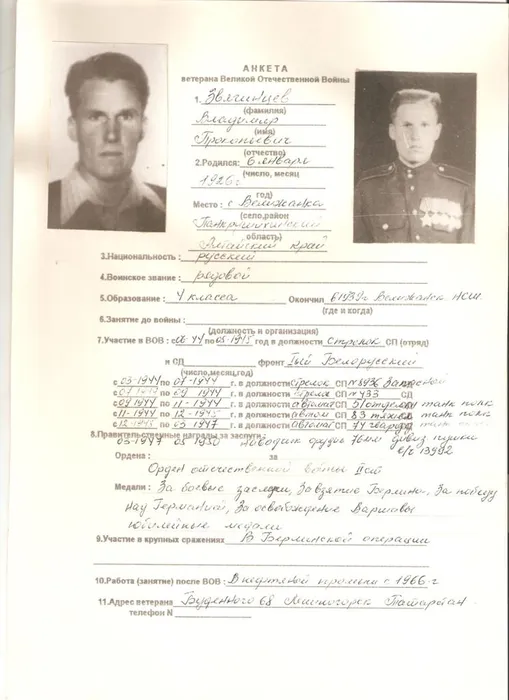 АНКЕТА
ветерана Великой Отечественной Войны
1. Звягинцев
(фамилия)
Владимир
(имя)
Прокопьевич
(отчество)
2.Родился: 6 январь
(число, месяц
1926 г.
год)
Место: с Велижанка
(село,район
Панкрушихинский
область)
Алтайский край
3.Национальность: русский
4.Воинское звание: рядовой
5.Образование: 4 класса Окончил в 1939г НСШ.
(где и когда)
6.Занятие до войны:
(должность и организация)
7.Участие в ВОВ: 44 по 05-1945 год в должности Стрелок СП (отряд)
и СД фронт 1ый Белорусский
(число,месяц,год)
с 03-1944 по 07-1944 г. в должности стрелок СП Запасной
с 07 1944 по 09 1944 г. в должности стрелк СП №733 СД
с 09 1944 по 11-1944 г. в должности автомат СП 51 танк полк
с 11-1944 по 12-1945 г. в должности автом СП 83 тяжел танк полк
с 12-1945 по 03 1947 г. в должности автомат СП 74 гвард танк
8.Правительственные награды за заслуги:
03-1947 05 1950 наводчик орудия 76мм дивиз пушки
в/ч 13992
Ордена: за
Орден отечественной войны II ст
Медали: За боевые заслуги, За взятие Берлина, За победу
над Германией, За освобождение Варшавы
юбилейные медали
9.Участие в крупных сражениях В Берлинской операции
10.Работа (занятие) после ВОВ: В нефтяной промысел с 1966 г
11.Адрес ветерана Буденного 68 Лениногорск Татарстан.
телефон N